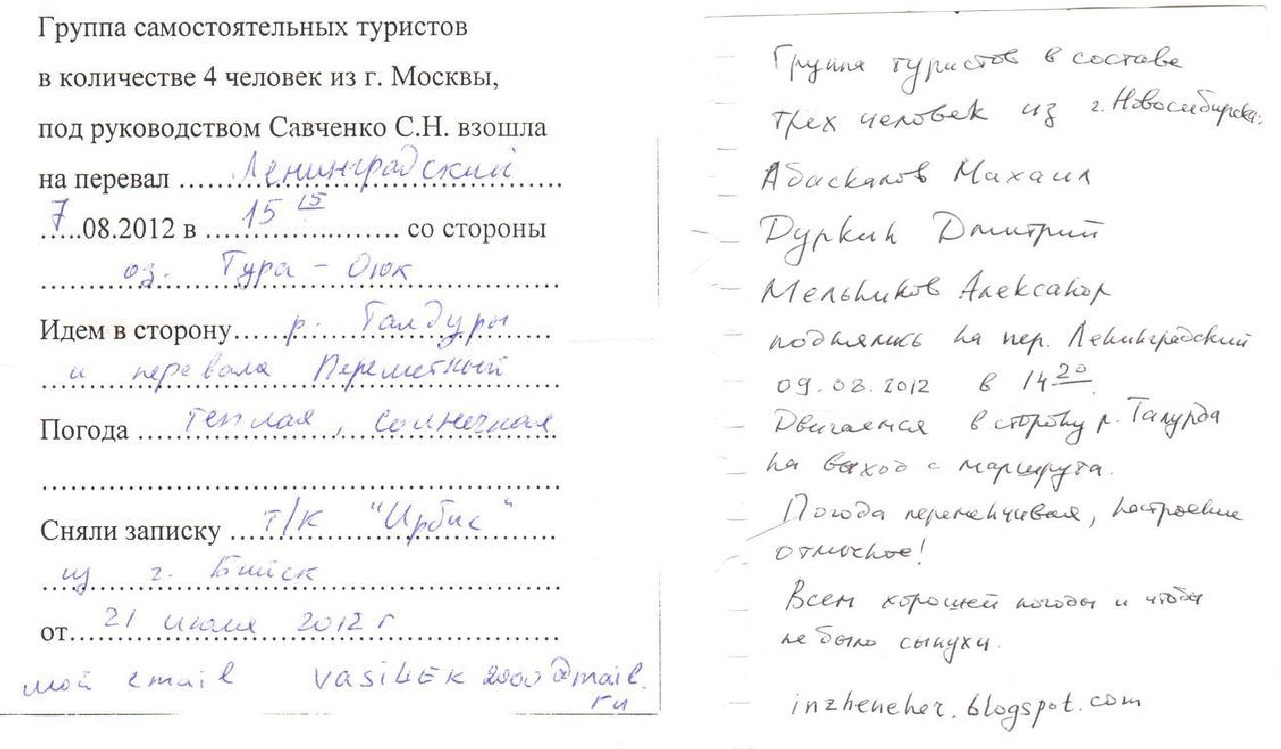 Группа самостоятельных туристов
в количестве 4 человек из г. Москвы,
под руководством Савченко С.Н. взошла
на перевал Ленинградский
7.08.2012 в 15 15 со стороны
оз. Тура-Оюк
Идем в сторону р. Талдуры
и перевала Переметный
Погода теплая, солнечная
Сняли записку т/к "Ирбис"
из г. Бийск
от 21 июля 2012 г
мой email vasiLEK2000@mail.
ru
Группа туристов в составе
трех человек из г. Новосибирска:
Абаскалов Михаил
Дуркин Дмитрий
Мельников Александр
поднялись на пер. Ленинградский
09.08.2012 в 14 20
Двигаемся в сторону р. Талурда
на выход с маршрута.
Погода переменчивая, настроение
отличное!
Всем хорошей погоды и чтобы
не было сыпухи.
inzheneher.blogspot.com